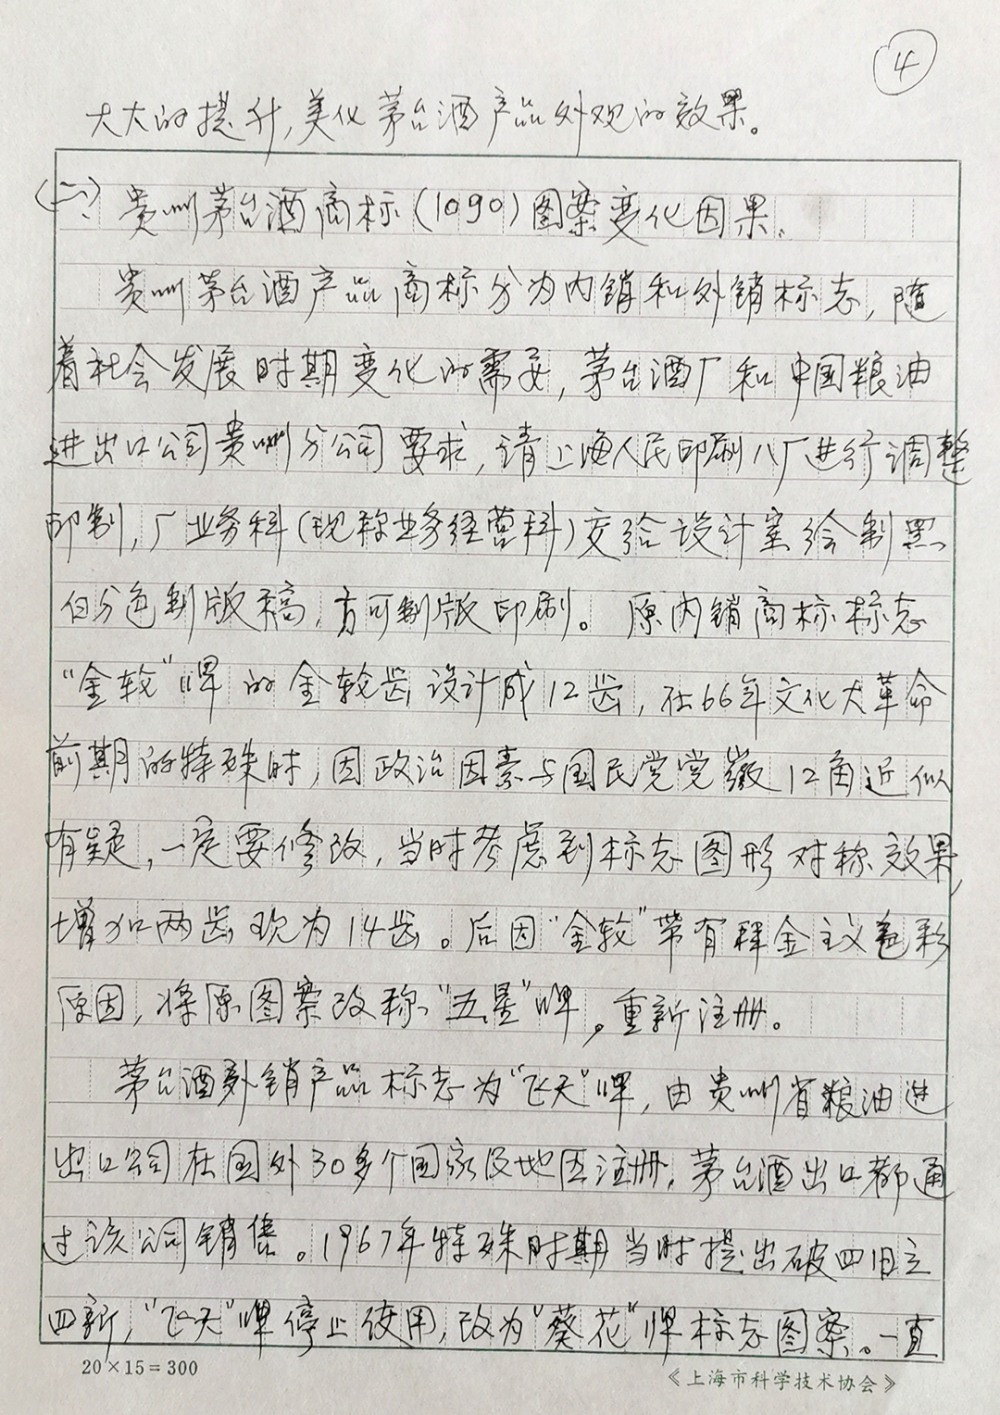 4
大大的提升,美化茅台酒产品外观的效果。
(二)、贵州茅台酒商标(1090)图案变化因果、
贵州茅台酒产品商标分为内销和外销标志,随
着社会发展时期变化的需要,茅台酒厂和中国粮油
进出口公司贵州分公司要求,请上海人民印刷八厂进行调整
印制,厂业务科(现称业务经营科)交给设计室绘制黑
白分色制版稿,方可制版印刷。原内销商标标志
“金轮”牌的金轮齿设计成12齿,在66年文化大革命
前期的特殊时,因政治因素与国民党党徽12角近似
有疑,一定要修改,当时考虑到标志图形对称效果,
增加两齿改为14齿。后因“金轮”带有拜金主义色彩
原因,将原图案改称“五星”牌,重新注册。
茅台酒外销产品标志为“飞天”牌,由贵州省粮油进
出口公司在国外30多个国家及地区注册,茅台酒出口都通
过该公司销售。1967年特殊时期当时提出破四旧立
四新,“飞天”牌停止使用,改为“葵花”牌标志图案。一直
20×15=300
《上海市科学技术协会》